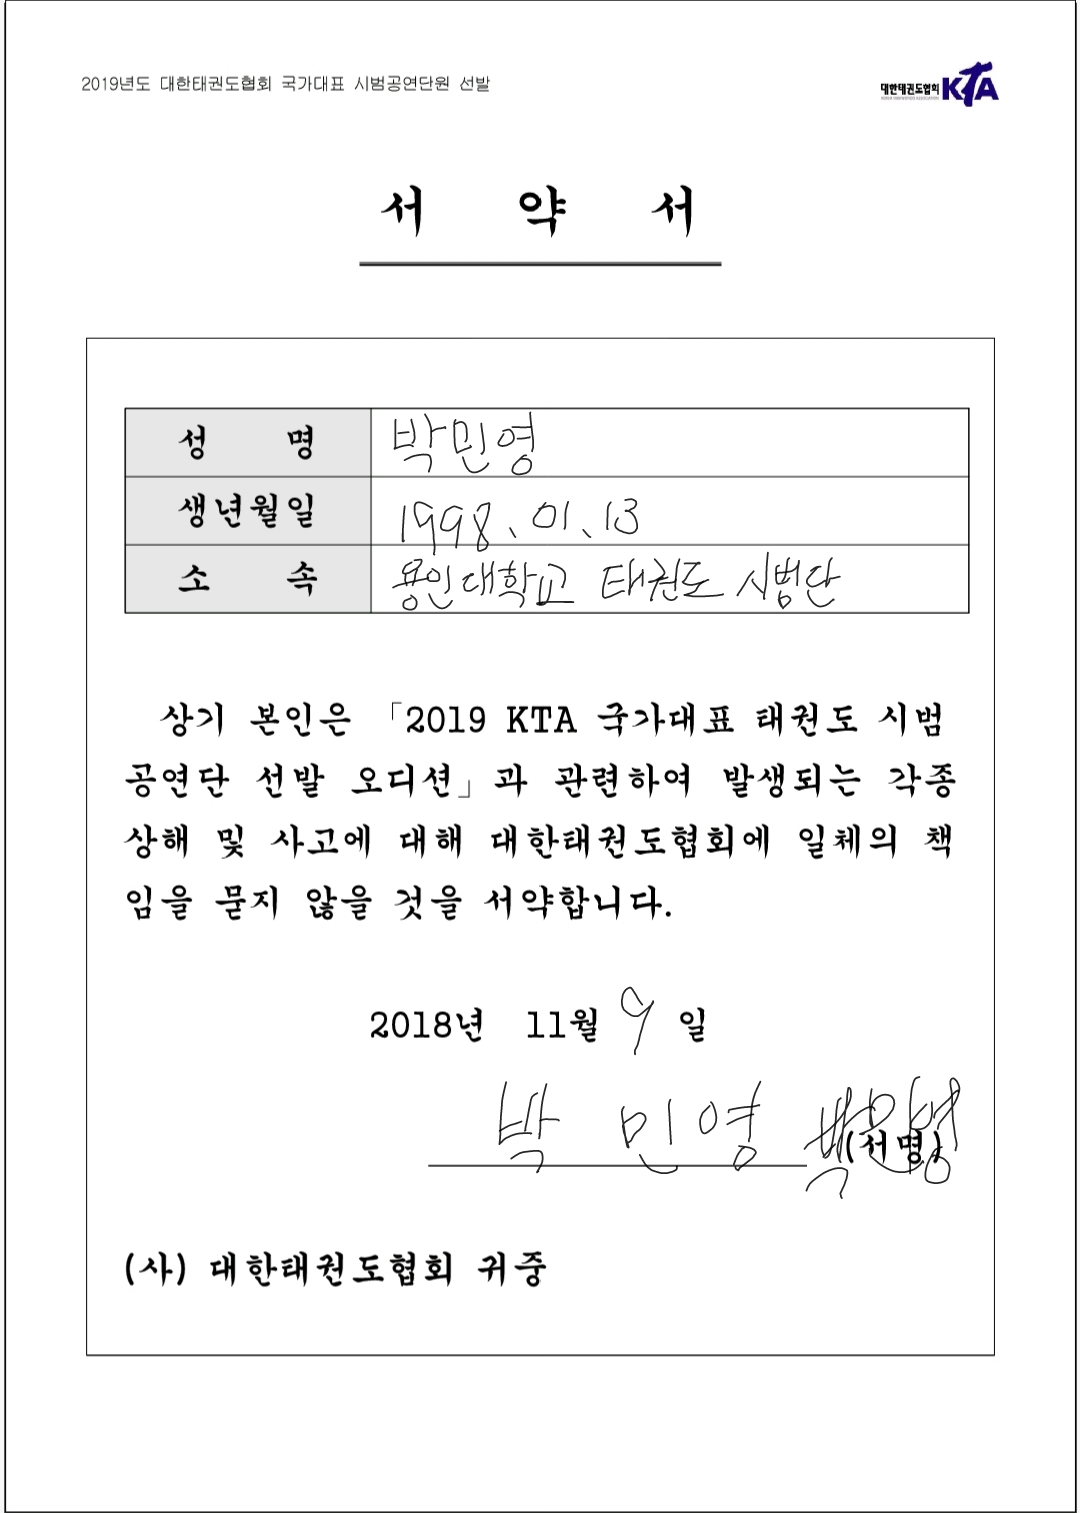 2019년도 대한태권도협회 국가대표 시범공연단원 선발
대한태권도협회 KTA
서 약 서
성 명 박민영
생년월일 1998. 01. 13
소 속 용인대학교 태권도 시범단
상기 본인은 「2019 KTA 국가대표 태권도 시범
공연단 선발 오디션」과 관련하여 발생되는 각종
상해 및 사고에 대해 대한태권도협회에 일체의 책
임을 묻지 않을 것을 서약합니다.
2018년 11월 9 일
박 민 영 박민영 (서명)
(사) 대한태권도협회 귀중